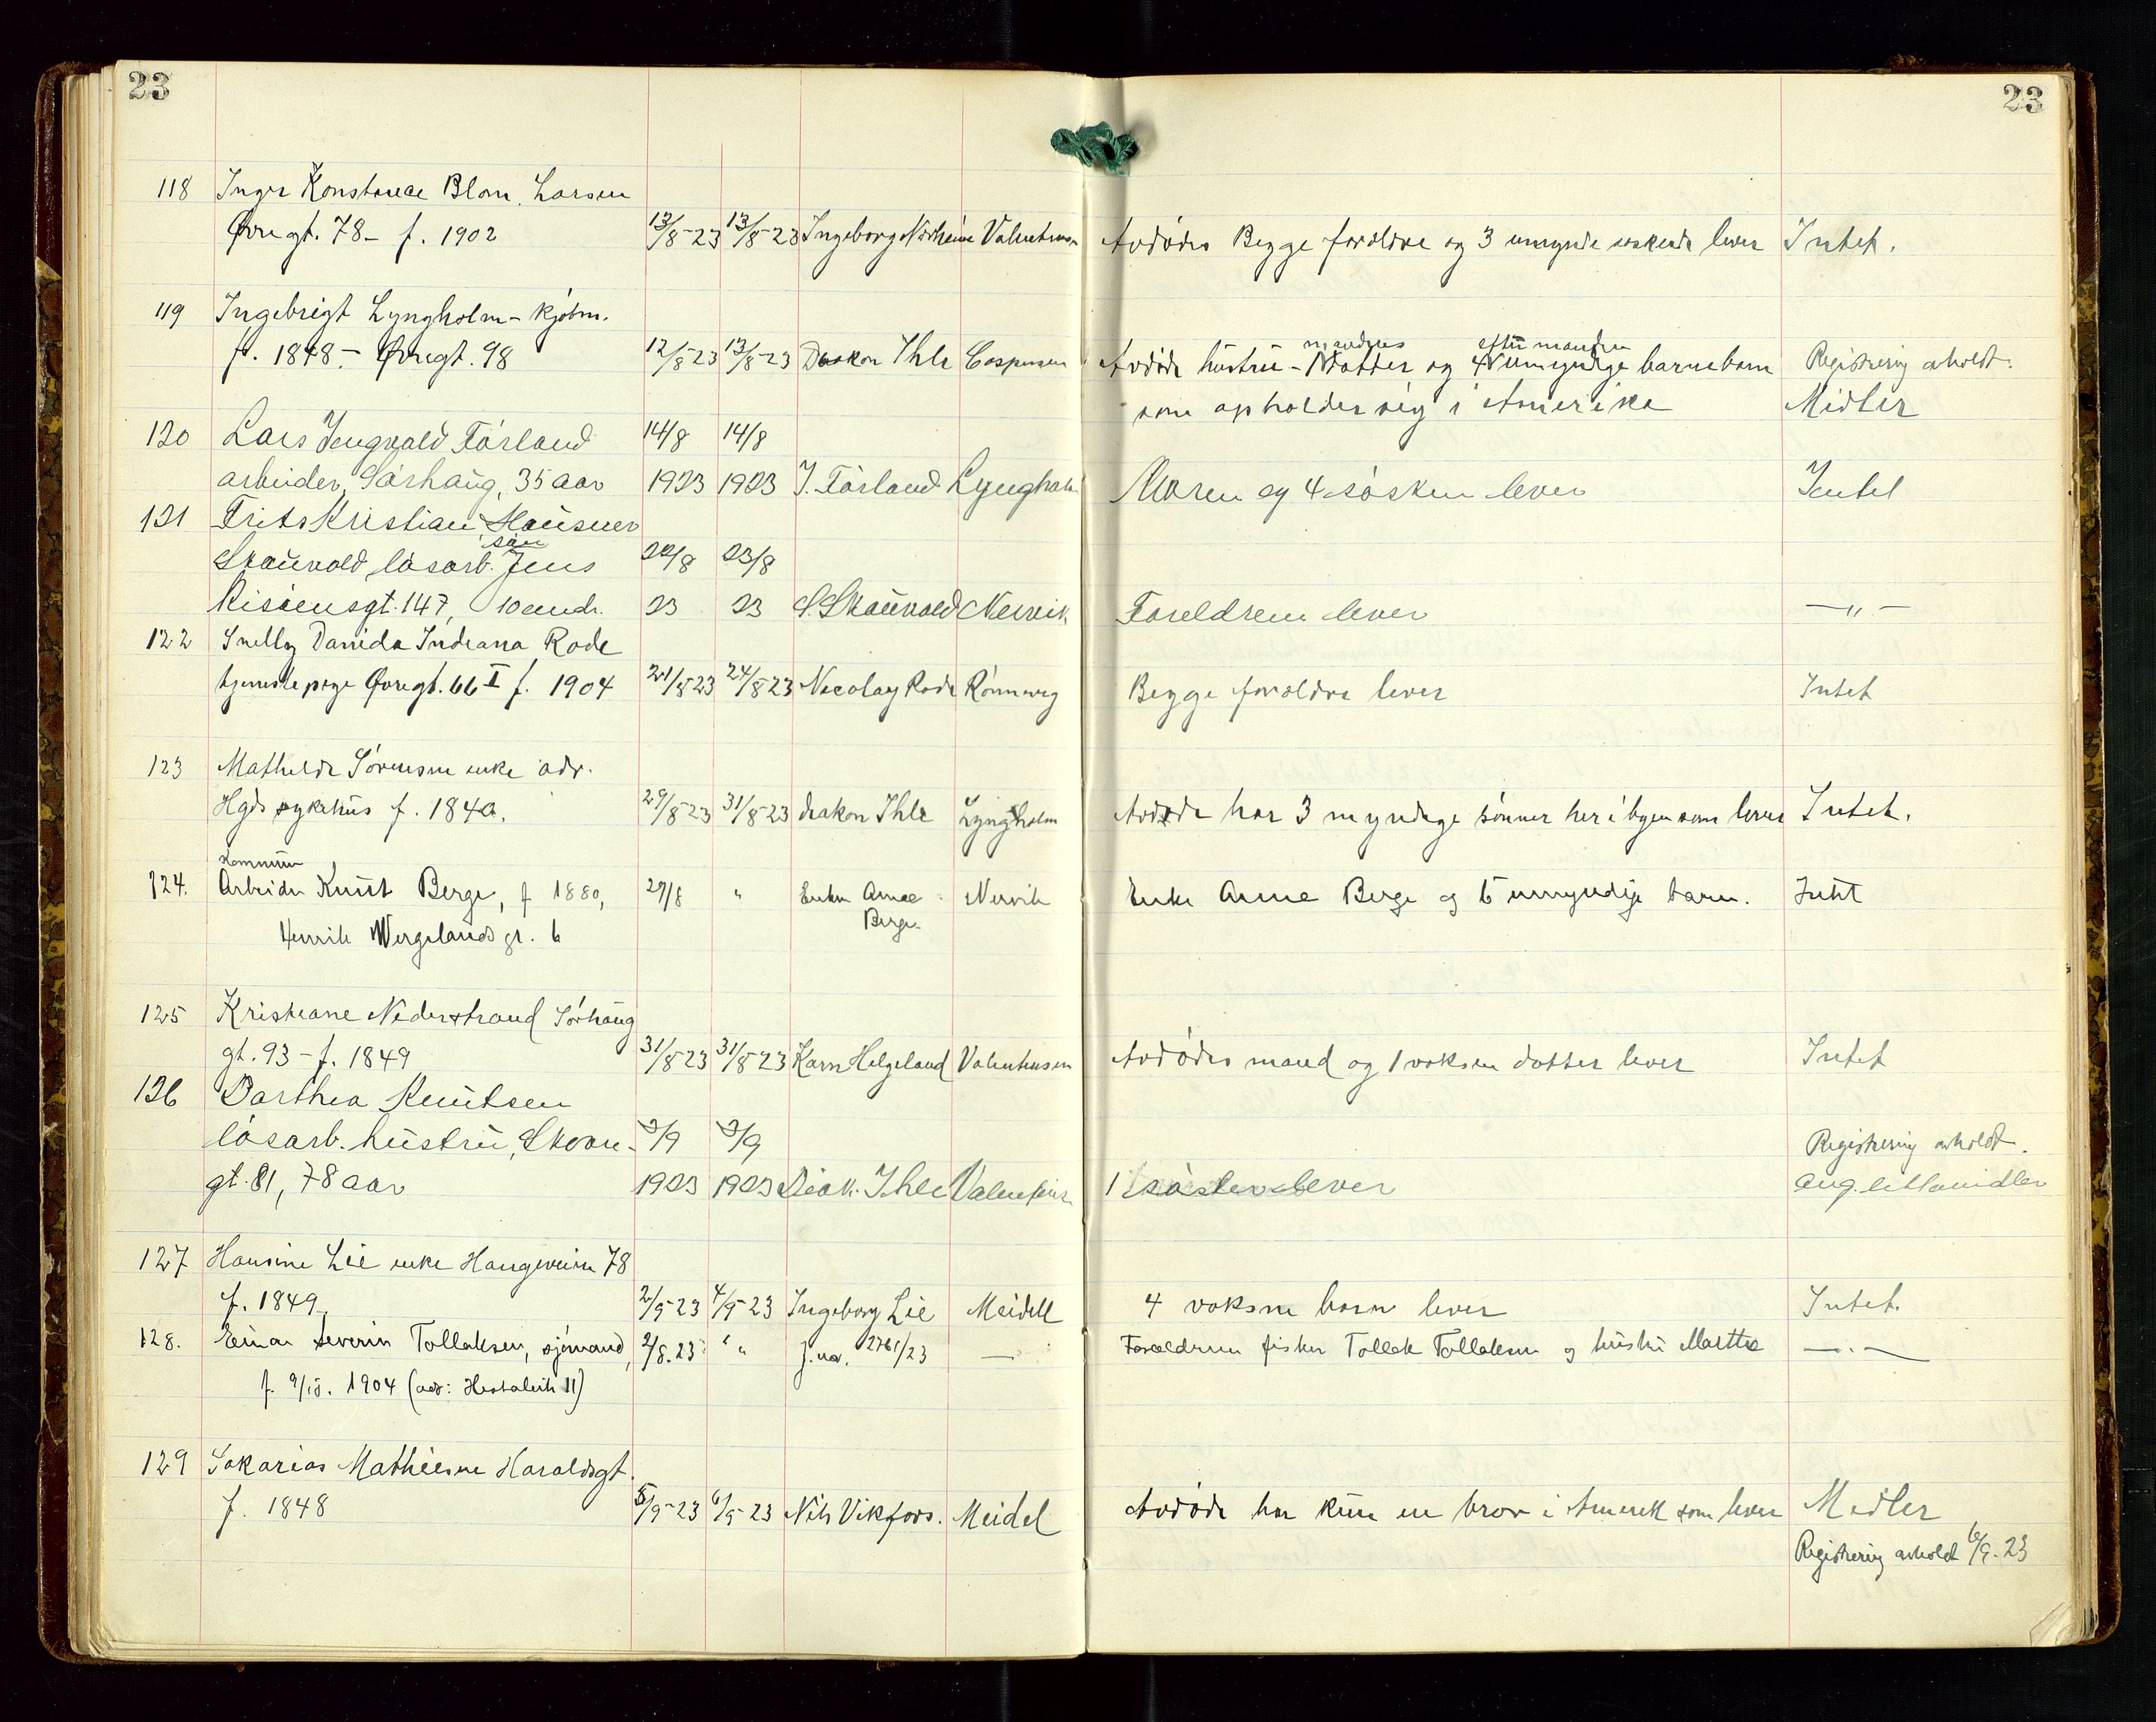 23
23
118 Inger Konstance Blom. Larsen
Øvregt. 78 - f. 1902 13/8-23 13/8-23 Ingeborg Norheim Valentinsen Avdødes Begge foreldre og 3 umynde søskende lever Intet.
119 Ingebrigt Lyngholm - kjøbm.
f. 1848 - Øvregt. 98 12/8-23 13/8-23 Deakon Ihle Caspersen Avdøde hustru - 1 myndges datter og 4 efter manden umyndige barnebarn Registrering avholdt.
som opholder sig i Amerika Midler
120 Lars Ingvald Førland 14/8 14/8
arbeider, Sørhaug, 35 aar 1923 1923 J. Førland Lyngholm Moren og 4 søsken lever Intet
121 Frits Kristian Hausner
Skauvold, løsarb. Jens søn 22/8 23/8
Risøensgt. 147, 10 mndr. 23 23 S. Skauvold Nervik Foreldrene lever — " —
122 Snelly Danida Indiana Rode
tjenestepige Øvregt. 66 II f. 1904 21/8 23 24/8 23 Nicolay Rode Rønnevig Begge foreldre lever Intet
123 Mathilde Sørensen enke adr.
Hgds sykehus f. 1840. 29/8 23 31/8 23 deakon Ihle Lyngholm Avdøde har 3 myndige sønner her i byen som lever Intet.
124. Kommune
Arbeider Knut Berge, f 1880, 29/8 " Enken Anna Berge Nervik Enke Anna Berge og 6 umyndige barn. Intet
Henrik Wergelands gt. 6
125 Kristiane Nederstrand Sørhaug
gt. 93 - f. 1849 31/8 23 31/8 23 Karn Helgeland Valentinsen Avdødes mand og 1 voksen datter lever Intet
126 Barthea Knutsen
løsarb. hustru, Skaare- 3/9 3/9 Registrering avholdt.
gt. 81, 78 aar 1923 1923 Diak. Ihle Valentins. 1 søster lever ang. litt midler
127 Hansine Lie enke Haugeveien 78
f. 1849 2/9-23 4/9-23 Ingeborg Lie Meidell 4 voksne barn lever Intet.
128. Einar Severin Tollaksen, sjømand, 2/8.23 " " J.no. 2761/23 — Forældrene fisker Tollak Tollaksen og hustru Marthe — . —
f. 9/10. 1904 (adr: Hestaleiti 11)
129 Sakarias Mathiesen Haraldsgt.
f. 1848 5/9-23 6/9-23 Nils Vikfors. Meidel Avdøde har kun en bror i Amerik som lever Midler
Registrering avholdt 6/9-23